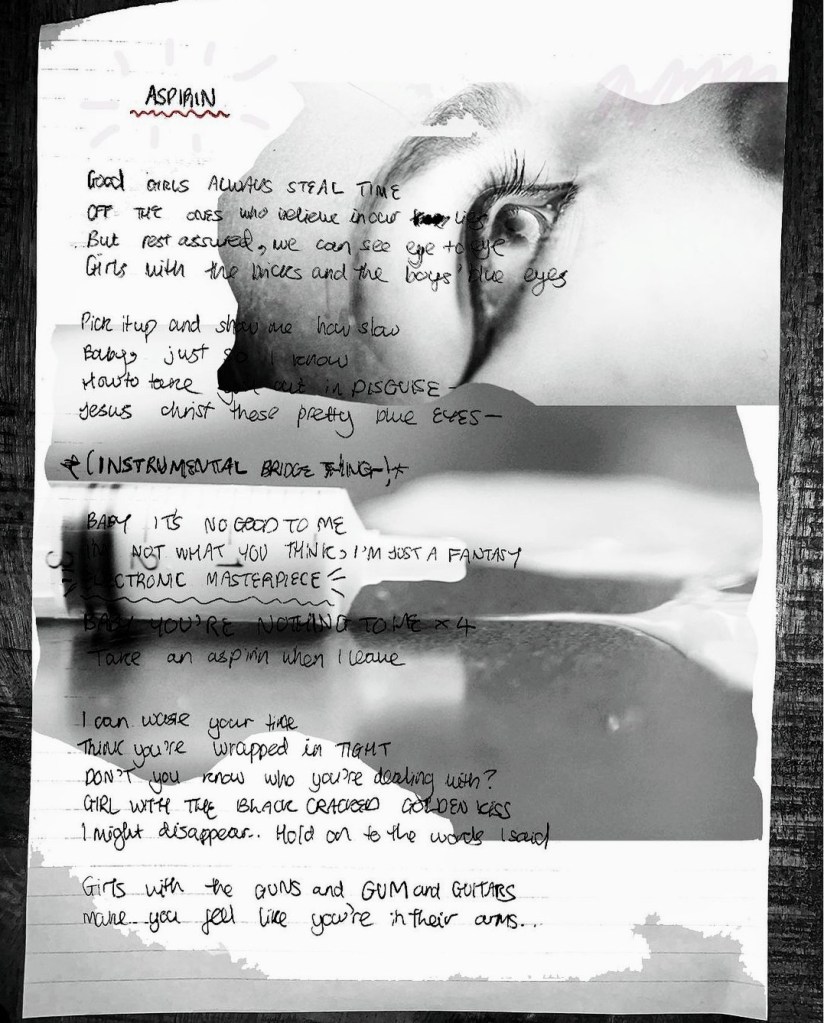 ASPIRIN
Good GIRLS ALWAYS STEAL TIME
OFF THE ONES who believe in our lies
But rest assured, we can see eye to eye
Girls with the bricks and the boys' blue eyes
Pick it up and show me how slow
Baby, just so I know
How to take you out in DISGUISE -
Jesus christ these pretty blue EYES -
*(INSTRUMENTAL BRIDGE THING-)*
BABY IT'S NO GOOD TO ME
NOT WHAT YOU THINK, I'M JUST A FANTASY
ELECTRONIC MASTERPIECE
BABY YOU'RE NOTHING TO ME x 4
Take an aspirin when I leave
I can waste your time
Think you're wrapped in TIGHT
DON'T you know who you're dealing with?
GIRL WITH THE BLACK CRACKED GOLDEN KISS
I might disappear.. Hold on to the words I said
Girls with the GUNS and GUM and GUITARS
make you feel like you're in their arms...